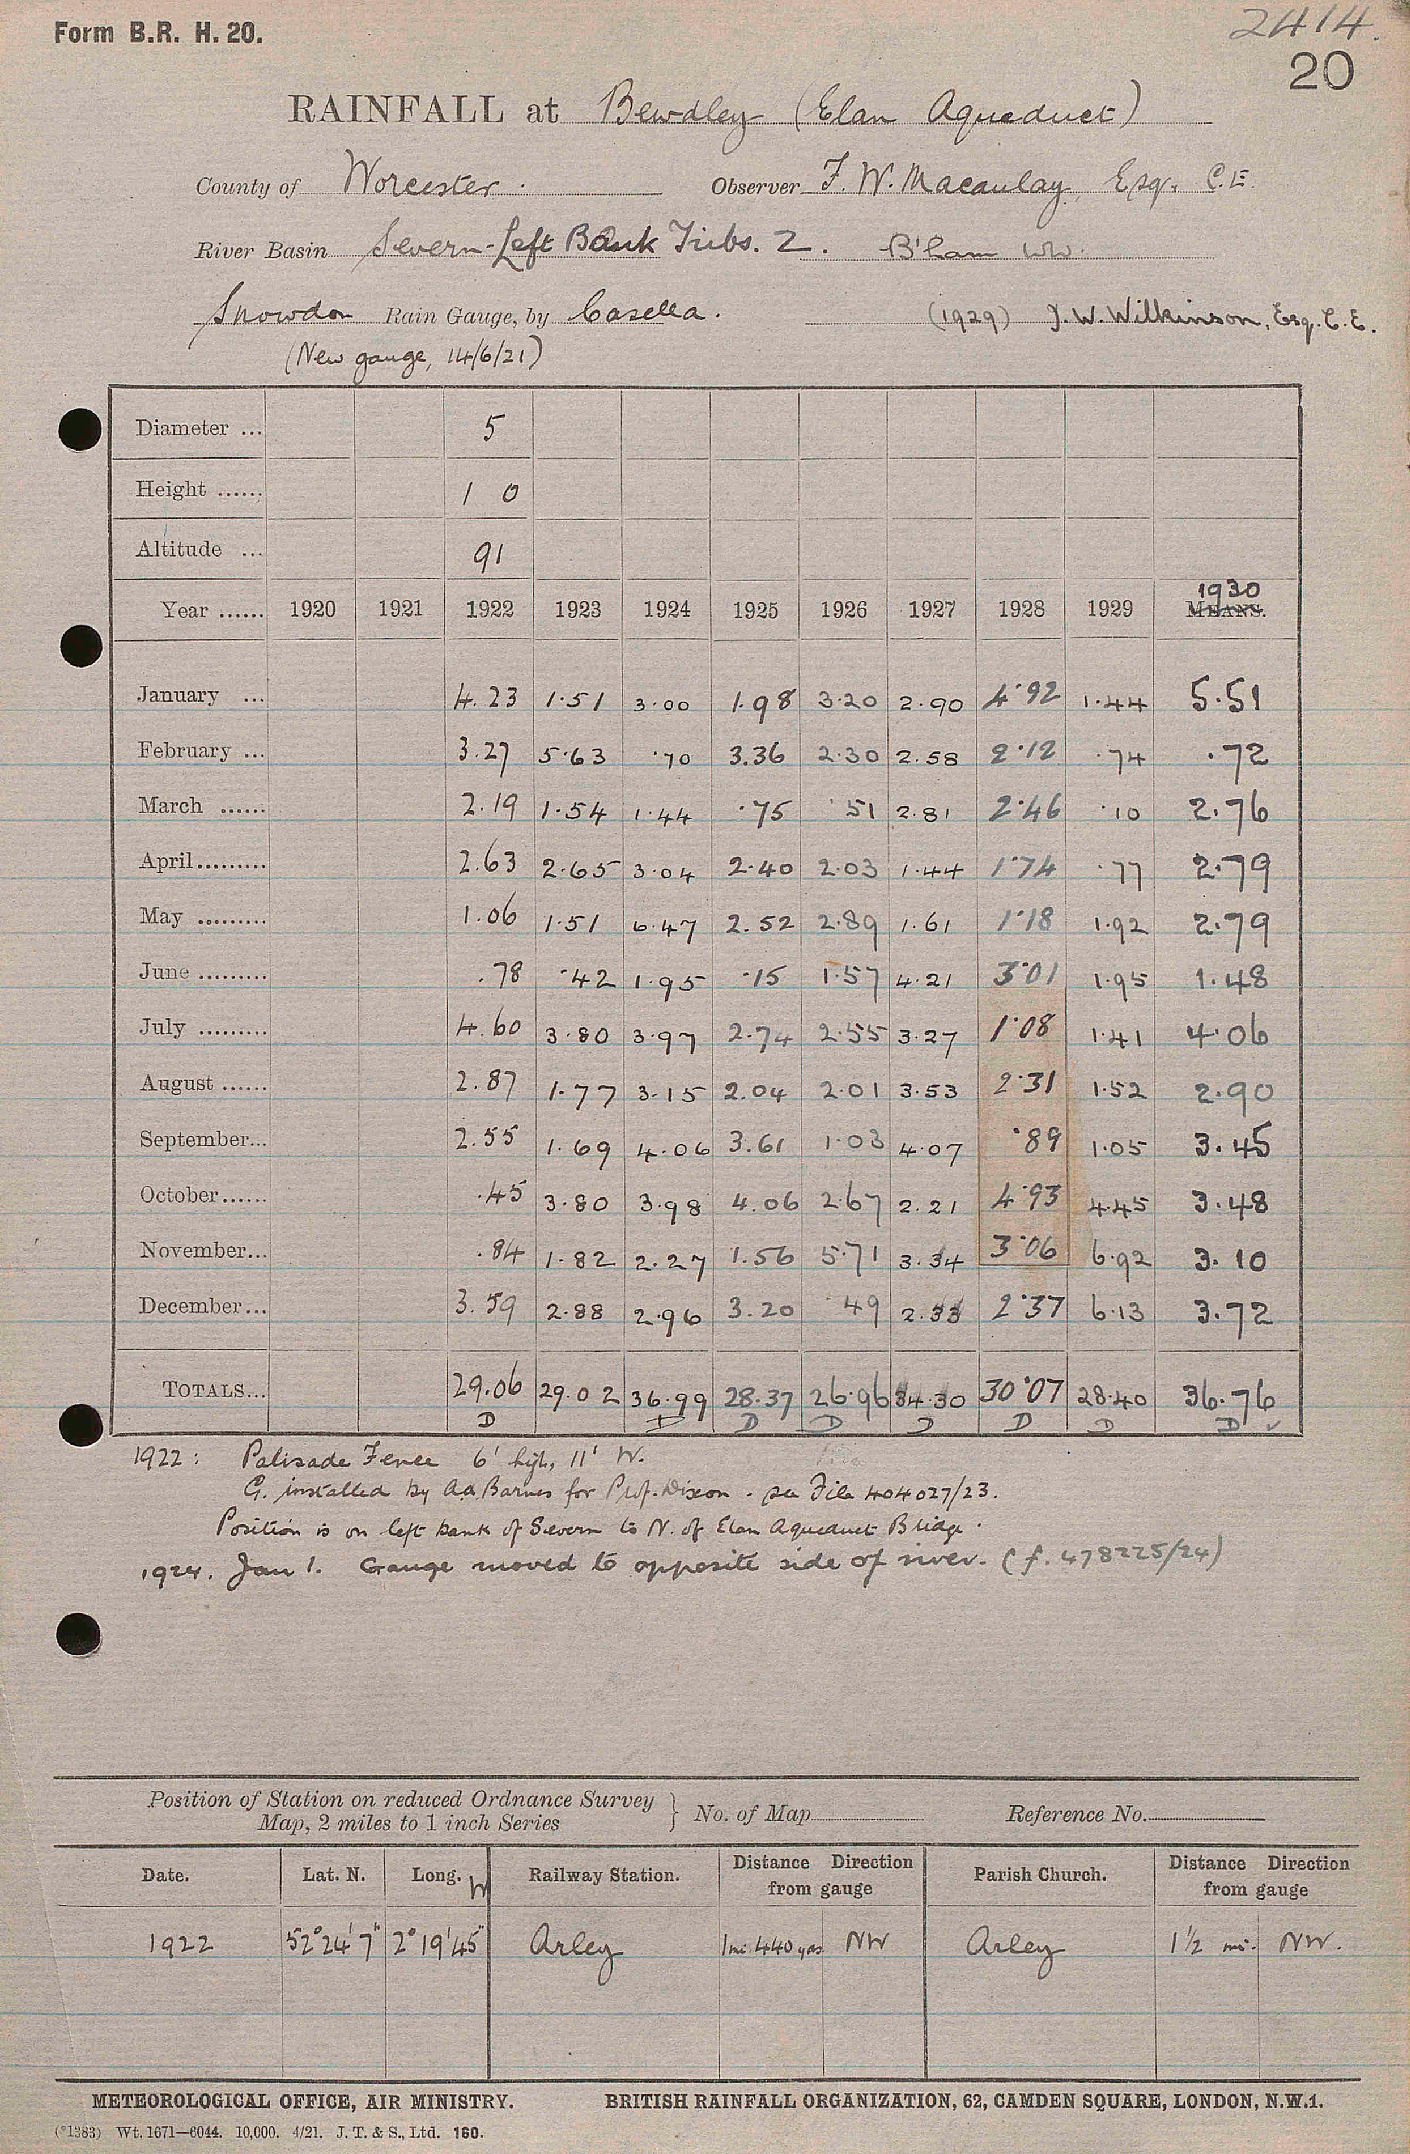 Form B.R. H. 20.
2414.
20
RAINFALL at Bewdley (Elan Aqueduct)
County of Worcester. Observer F. W. Macaulay, Esq. C.E.
River Basin Severn-Left Bank Tribs. 2. B'ham WW.
Snowdon Rain Gauge, by Casella. (1929) J. W. Wilkinson, Esq. C. E.
(New gauge, 14/6/21)
Diameter ... 5
Height ...... 1 0
Altitude ... 91
Year ...... 1920 1921 1922 1923 1924 1925 1926 1927 1928 1929 1930 MEANS.
January ... 4.23 1.51 3.00 1.98 3.20 2.90 4.92 1.44 5.51
February ... 3.27 5.63 .70 3.36 2.30 2.58 2.12 .74 .72
March ...... 2.19 1.54 1.44 .75 .51 2.81 2.46 .10 2.76
April......... 2.63 2.65 3.04 2.40 2.03 1.44 1.74 .77 2.79
May ......... 1.06 1.51 6.47 2.52 2.89 1.61 1.18 1.92 2.79
June ......... .78 .42 1.95 .15 1.57 4.21 3.01 1.95 1.48
July ......... 4.60 3.80 3.97 2.74 2.55 3.27 1.08 1.41 4.06
August ...... 2.87 1.77 3.15 2.04 2.01 3.53 2.31 1.52 2.90
September... 2.55 1.69 4.06 3.61 1.03 4.07 .89 1.05 3.45
October...... .45 3.80 3.98 4.06 2.67 2.21 4.93 4.45 3.48
November... .84 1.82 2.27 1.56 5.71 3.34 3.06 6.92 3.10
December... 3.59 2.88 2.96 3.20 .49 2.33 2.37 6.13 3.72
TOTALS... 29.06 29.02 36.99 28.37 26.96 34.30 30.07 28.40 36.76
D D D D D D D D ✓
1922: Palisade Fence 6' high, 11' W.
G. installed by A.A. Barnes for Prof. Dixon. see File 404027/23.
Position is on left bank of Severn to N. of Elan Aqueduct Bridge.
1924. Jan 1. Gauge moved to opposite side of river. (f. 478225/24)
Position of Station on reduced Ordnance Survey
Map, 2 miles to 1 inch Series } No. of Map Reference No.
Date. Lat. N. Long. W Railway Station. Distance Direction from gauge Parish Church. Distance Direction from gauge
1922 52° 24' 7" 2° 19' 45" Arley 1 mi 440 yds NW Arley 1½ mi. NW.
METEOROLOGICAL OFFICE, AIR MINISTRY. BRITISH RAINFALL ORGANIZATION, 62, CAMDEN SQUARE, LONDON, N.W.1.
(*1383) Wt. 1671—6044. 10,000. 4/21. J. T. & S., Ltd. 160.